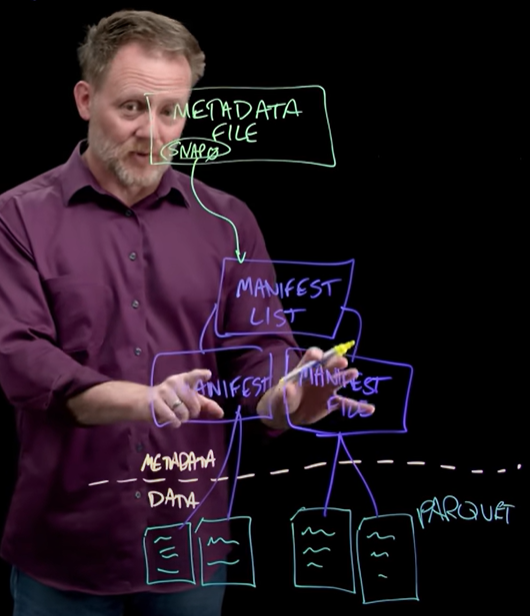 METADATA
FILE
SNAP0
MANIFEST
LIST
MANIFEST
MANIFEST
FILE
METADATA
DATA
PARQUET